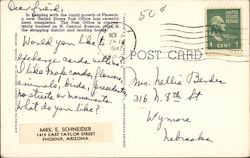 Dear friend,
In keeping with the rapid growth of Phoenix,
a new United States Post Office has recently
been completed. The Post Office is conven-
iently located on N. Central Avenue, near the
shopping district and leading hotels.
Would you like to
exchange cards with me?
I like map cards, flowers,
animals, birds, presidents,
no streets or monuments.
What do you like?
MRS. E. SCHNEIDER
1415 EAST TAYLOR STREET
PHOENIX, ARIZONA
50¢
POST CARD
NOV
1947
1¢
Mrs. Nellie Benke
316 N. 8th St
Wymore
Nebraska